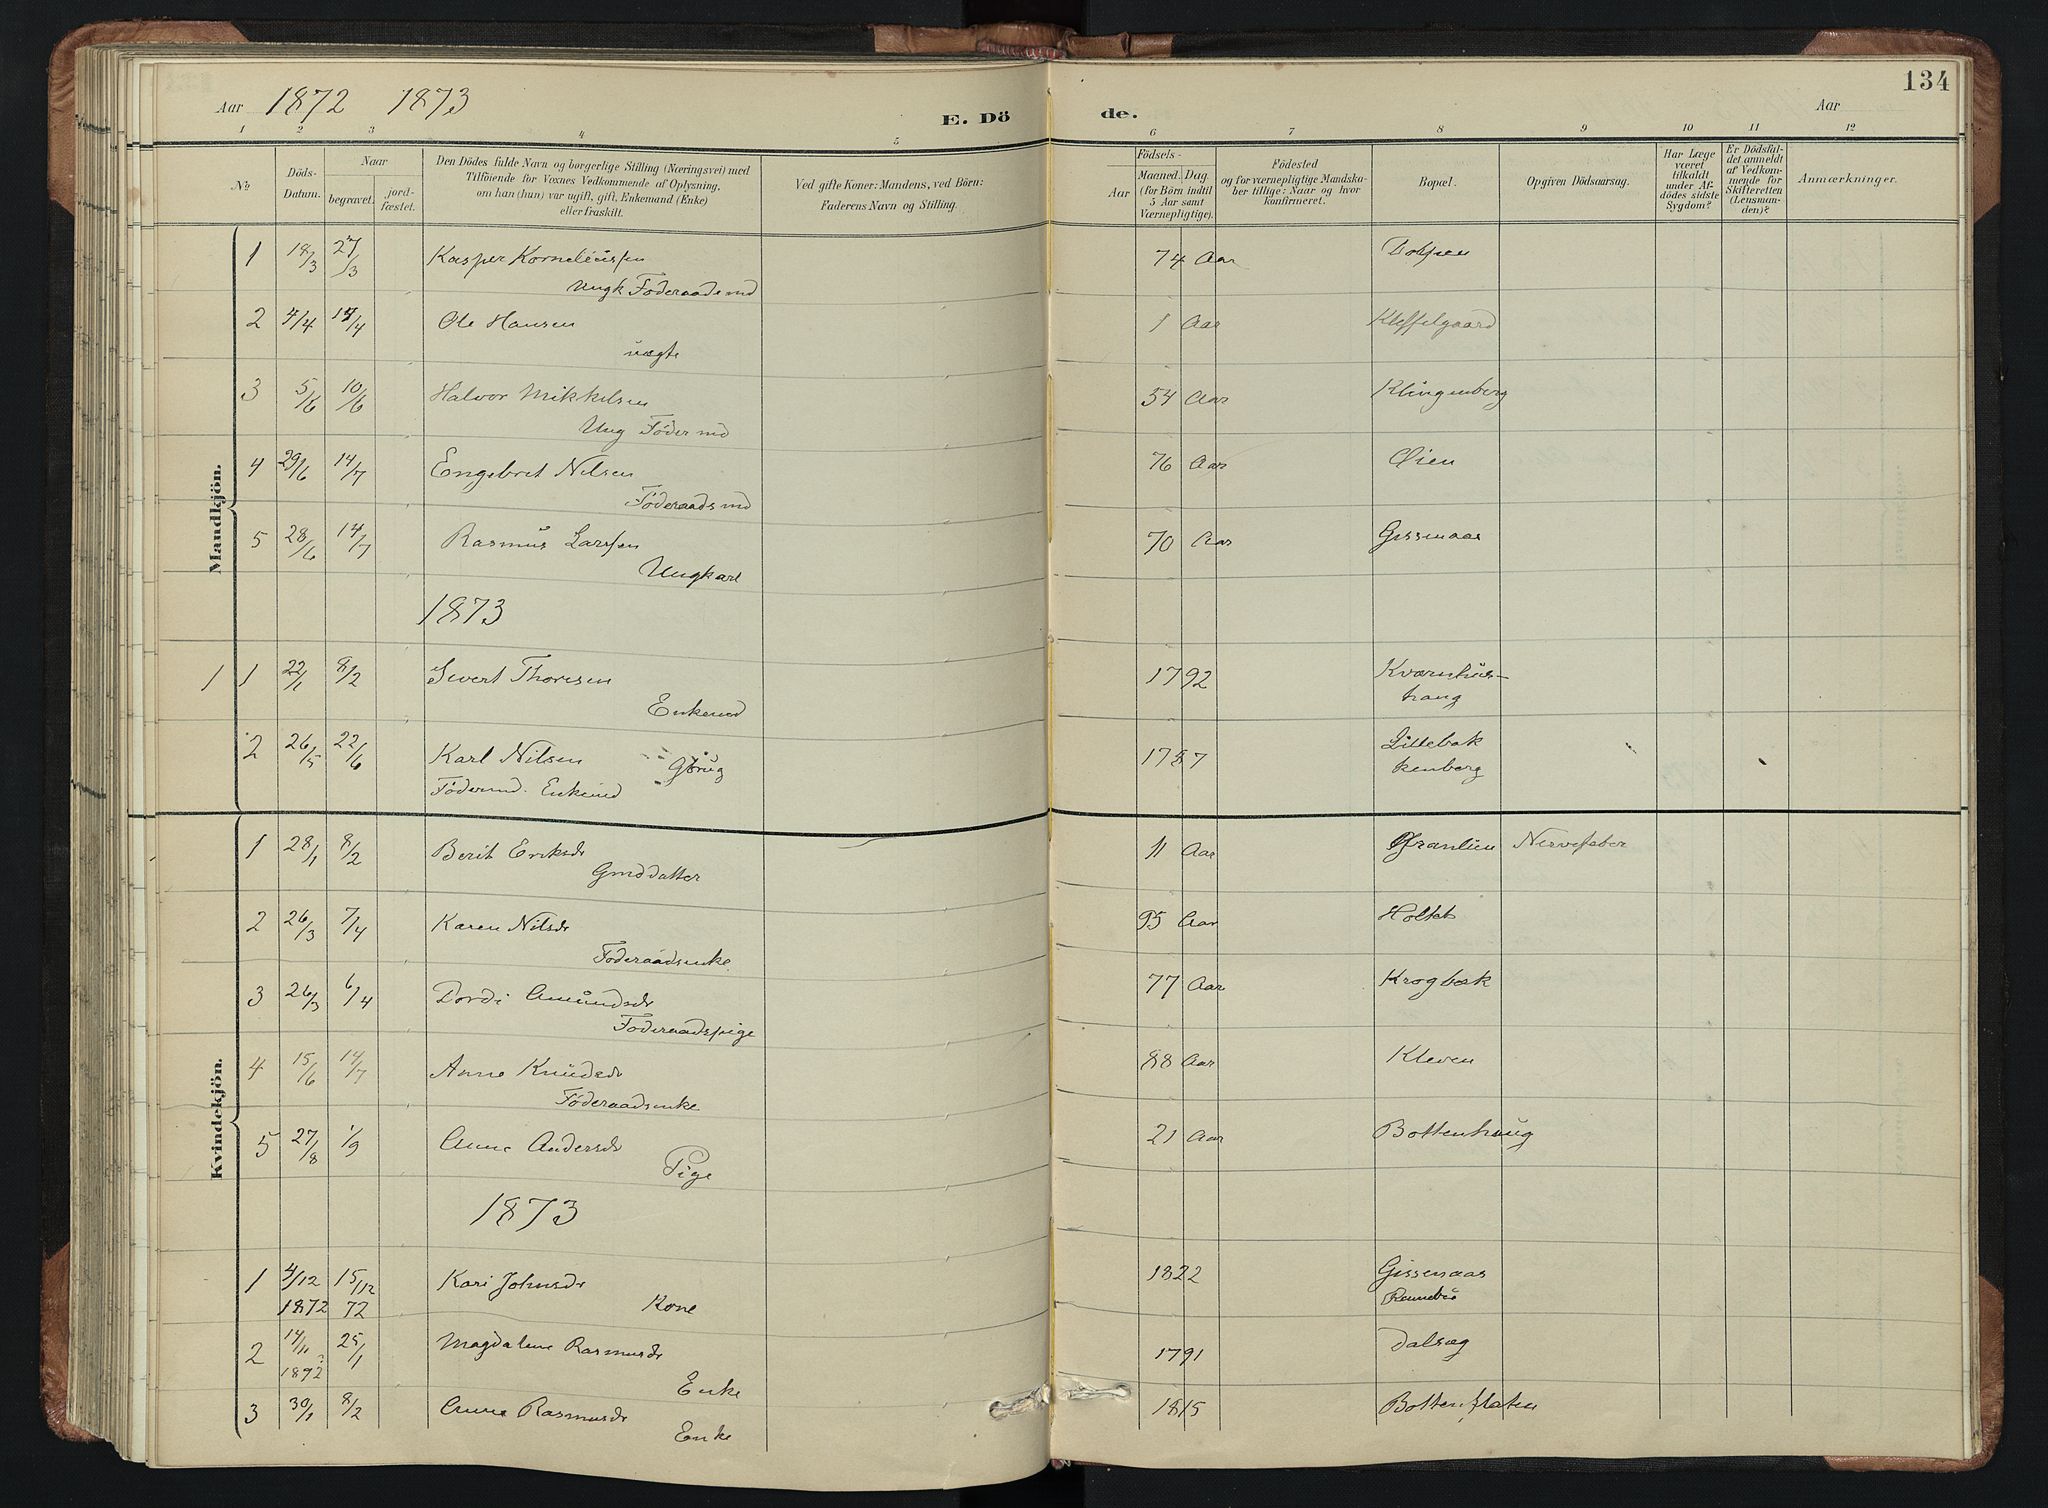 134
Aar 1872 1873
E. Dö de.
Aar
1 2 3 4 5 6 7 8 9 10 11 12
No
Döds-Datum.
Naar
begravet.
jord-fæstet.
Den Dödes fulde Navn og borgerlige Stilling (Næringsvei) med
Tilföiende for Voxnes Vedkommende af Oplysning,
om han (hun) var ugift, gift, Enkemand (Enke)
eller fraskilt.
Ved gifte Koner: Mandens, ved Börn:
Faderens Navn og Stilling.
Födsels-
Aar
Maaned. Dag
(for Börn indtil
5 Aar samt
Værnepligtige).
Födested
og for værnepligtige Mandska-
ber tillige: Naar og hvor
konfirmeret.
Bopæl.
Opgiven Dödsaarsag.
Har Læge
været
tilkaldt
under Af-
dödes sidste
Sygdom?
Er Dödsfal-
det anmeldt
af Vedkom-
mende for
Skifteretten
(Lensman-
den)?
Anmærkninger.
Mandkjön.
1 18/3 27/3 Kasper Korneliussen 74 Aar
Ungk Föderaadsmd
2 4/4 14/4 Ole Hansen 1 Aar Kleffelgaard
uægte
3 5/6 10/6 Halvor Mikkelsen 54 Aar Klingenberg
Ung Föder md
4 29/6 14/7 Engebret Nilsen 76 Aar Øien
Föderaadsmd
5 28/6 14/7 Rasmus Larssen 70 Aar Gissenaas
Ungkarl
1873
1 1 22/1 8/2 Sivert Thoresen 1792 Kværnhus-
trang
Enkemd
2 26/5 22/6 Karl Nilsen Gbrug 17 7 Littebak
kenberg
Födermd. Enkemd
Kvindekjön.
1 28/1 8/2 Berit Eriksdr 11 Aar Granlien Nervefeber
Gmddatter
2 26/3 7/4 Karen Nilsdr 95 Aar Holtet
Föderaadsenke
3 26/3 6/4 Dordi Amundsdr 77 Aar Krogbæk
Föderaadspige
4 15/6 14/7 Anne Knudsdr 88 Aar Kleven
Föderaadsenke
5 27/8 1/9 Anne Andersdr 21 Aar Bottenhaug
Pige
1873
1 4/12 15/12 Kari Johnsdr 1822 Gissenaas
1872 72 Kone
2 14/11 25/1 Magdalene Rasmusdr 1791 Dalsæg
1872 ? Enke
3 30/1 8/2 Anne Rasmusdr 1815 Bottenflaten
Enke